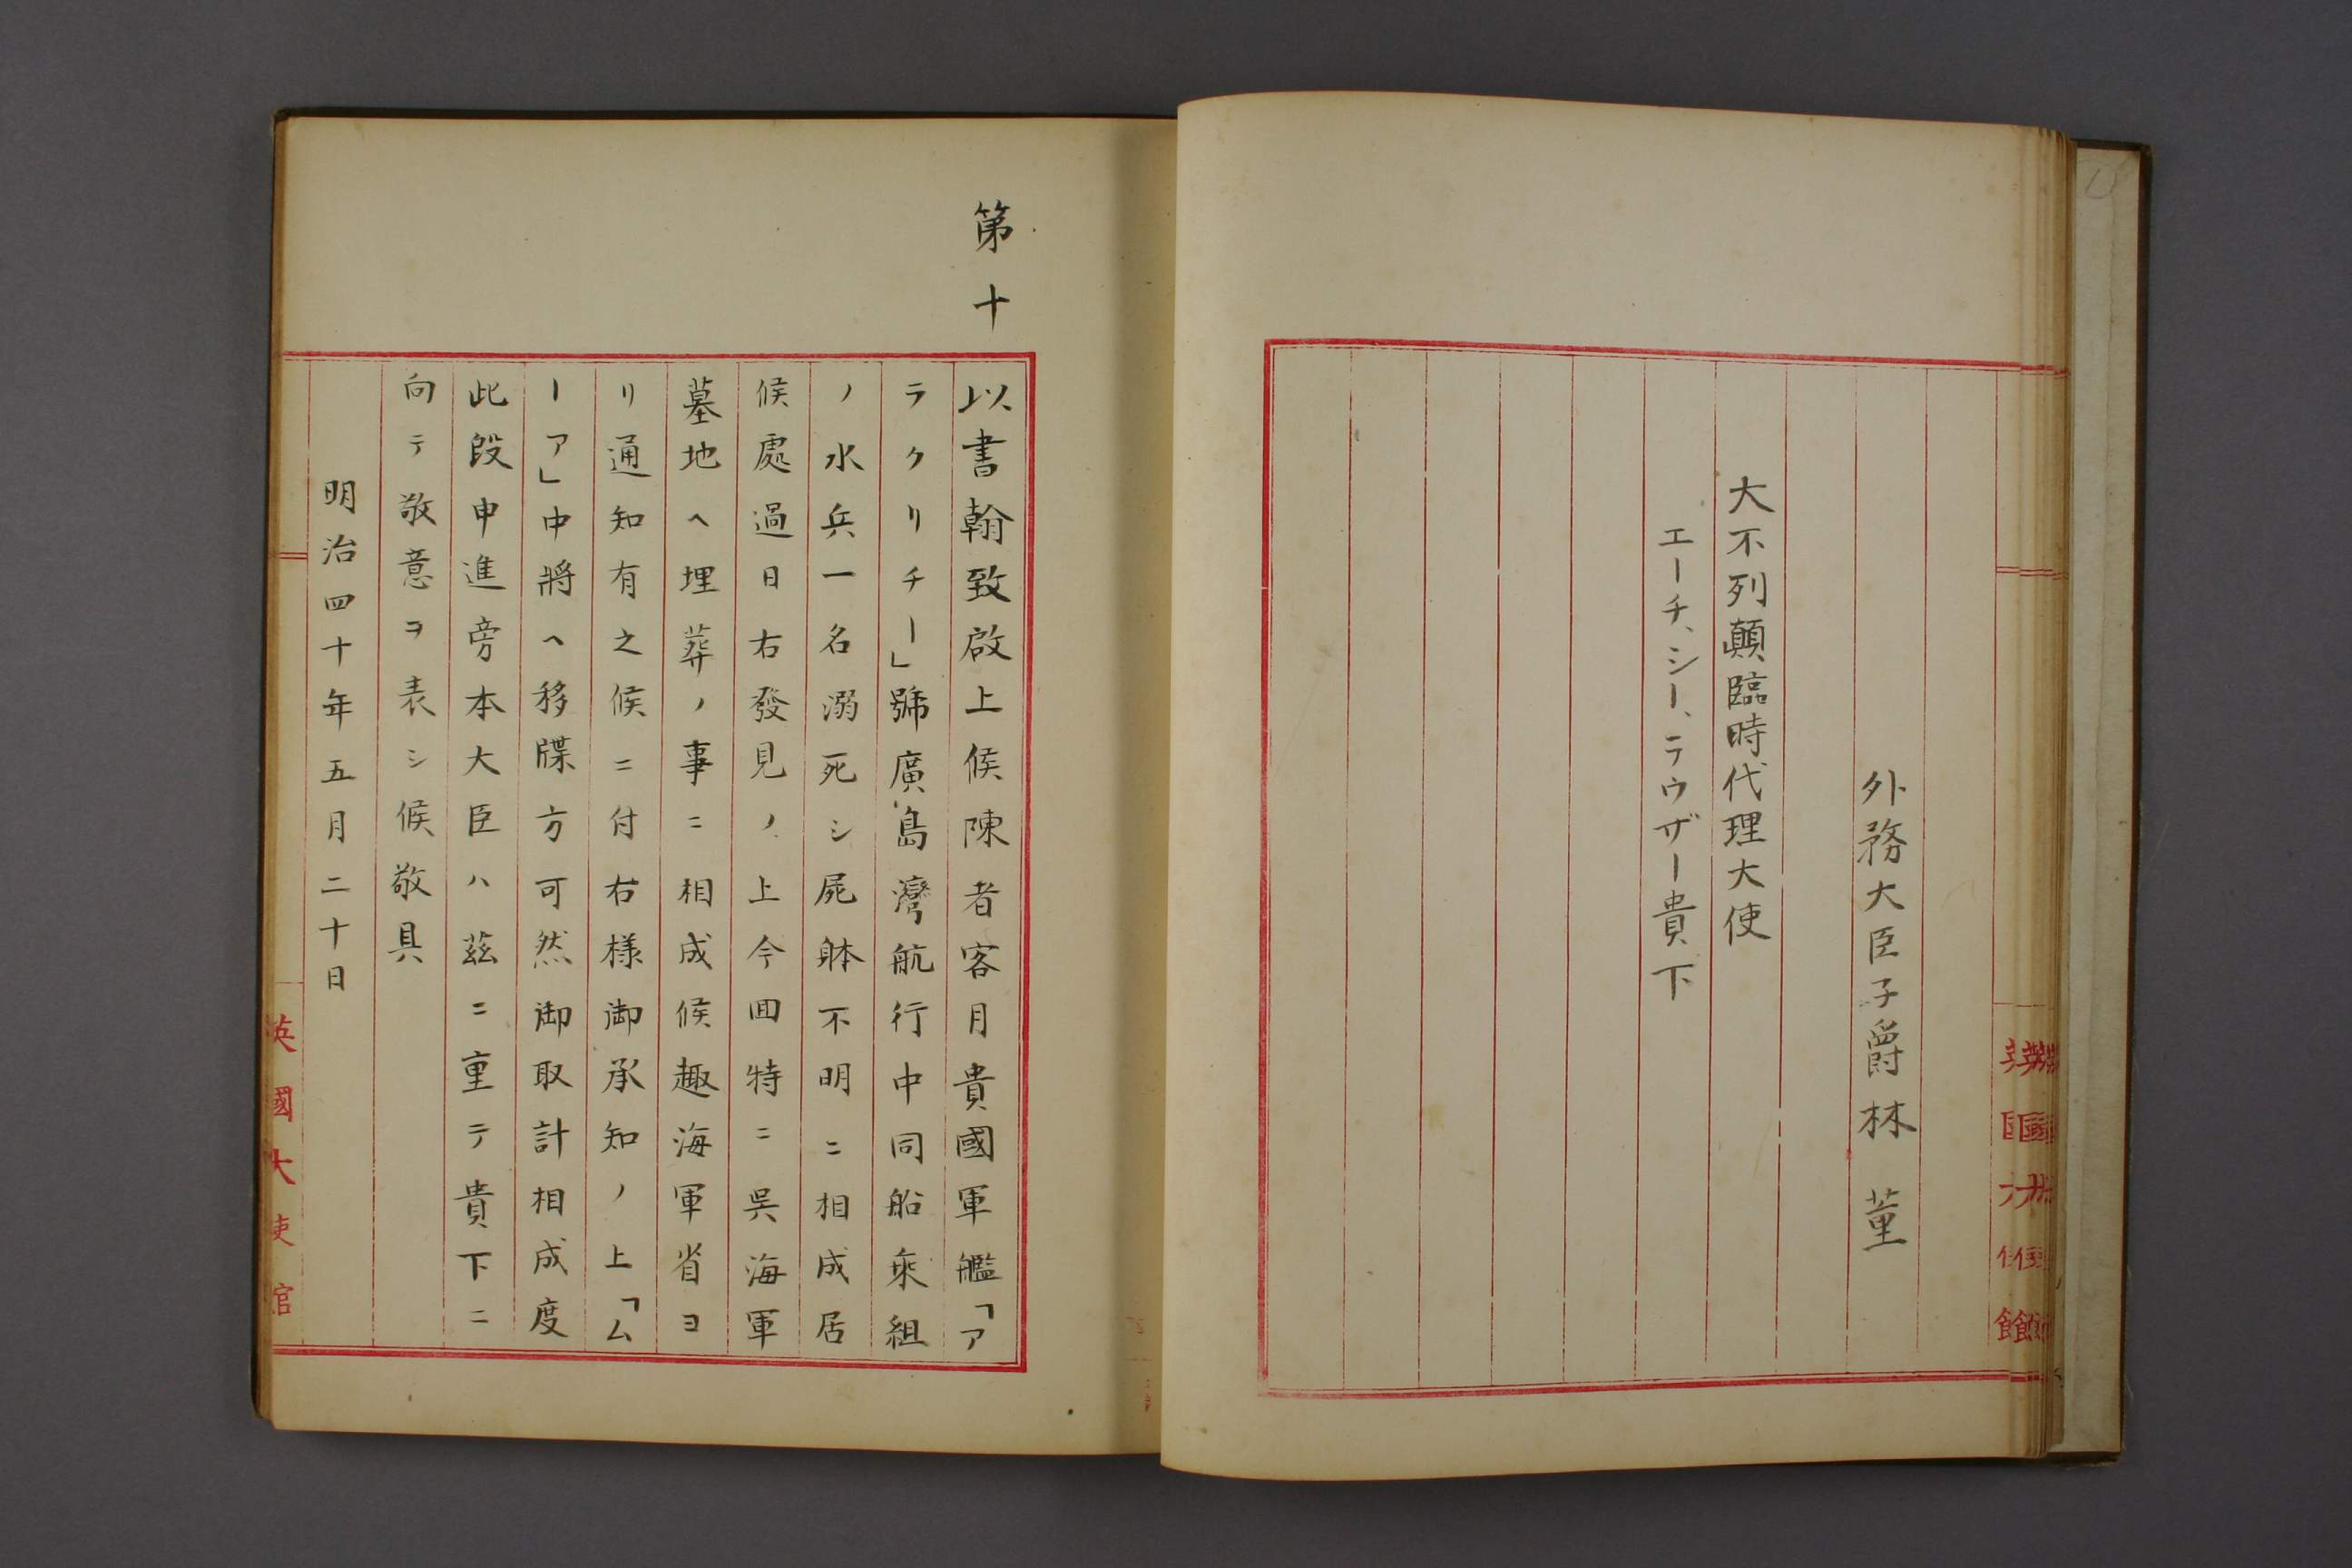 外務大臣子爵林董
大不列顛臨時代理大使
エーチ、シー、ラウザー貴下
第十
以書翰致啟上候陳者客月貴國軍艦「ア
ラクリチー」號廣島灣航行中同船乘組
ノ水兵一名溺死シ屍躰不明ニ相成居
候處過日右發見ノ上今囬特ニ吳海軍
墓地ヘ埋葬ノ事ニ相成候趣海軍省ヨ
リ通知有之候ニ付右樣御承知ノ上「ム
ーア」中將ヘ移牒方可然御取計相成度
此段申進旁本大臣ハ茲ニ重テ貴下ニ
向テ敬意ヲ表シ候敬具
明治四十年五月二十日
英國大使館